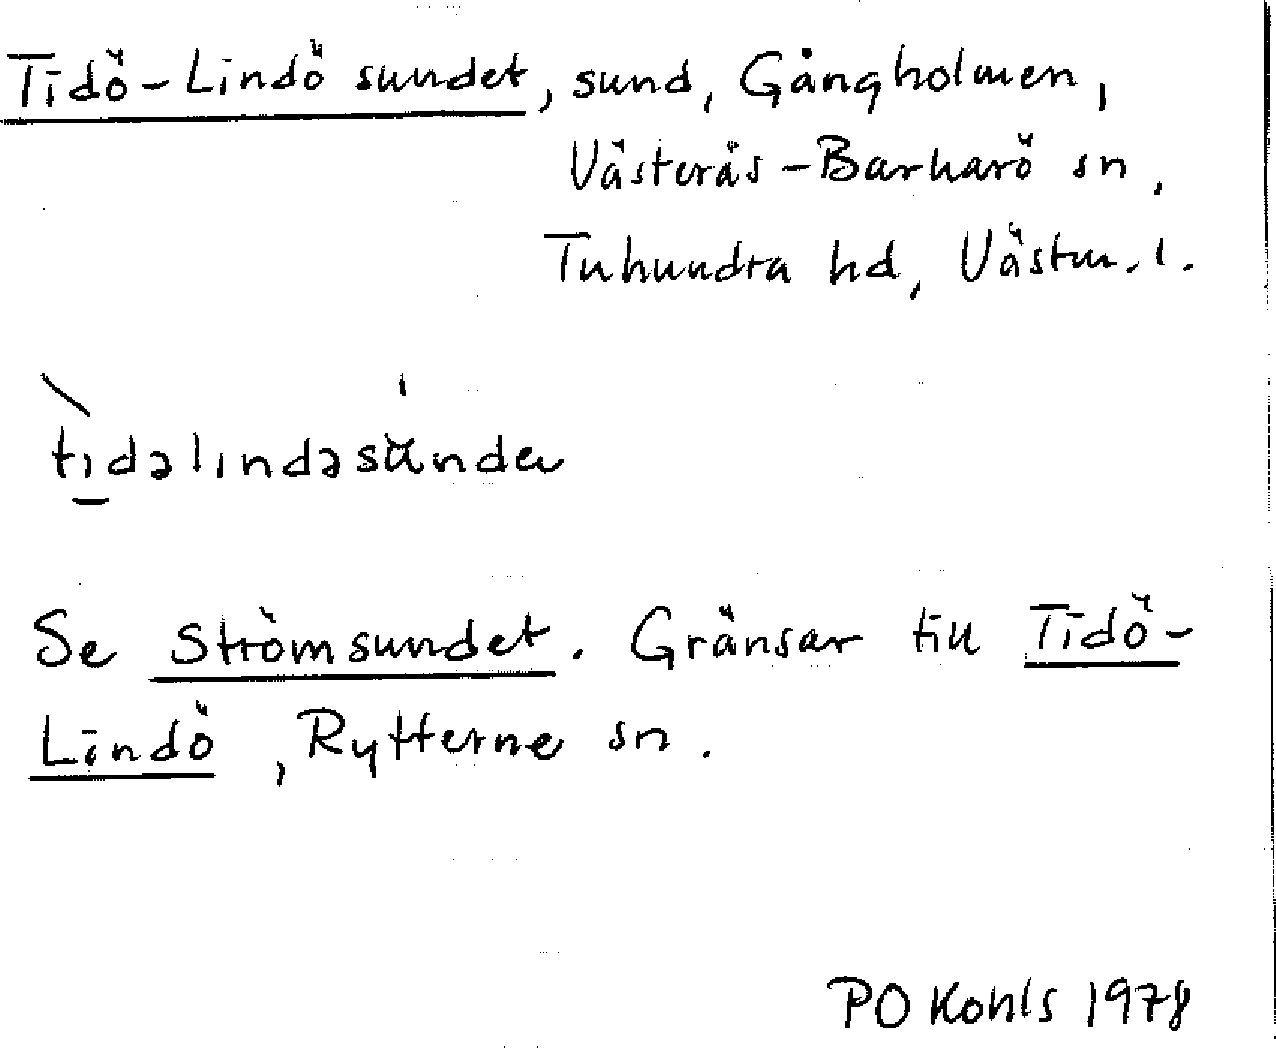 Tidö-Lindö sundet, sund, Gångholmen,
Västerås-Barkarö sn,
Tuhundra hd, Västm. l.
tidəlindəsŭndeu
Se Strömsundet. Gränsar till Tidö-
Lindö, Rytterne sn.
PO Kohls 1978